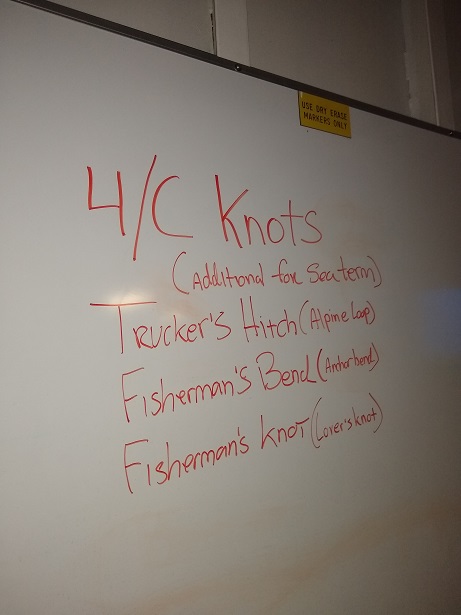 USE DRY ERASE
MARKERS ONLY
4/C Knots
(Additional for Sea term)
Trucker's Hitch (Alpine Loop)
Fisherman's Bend (Anchor bend)
Fisherman's Knot (Lover's knot)